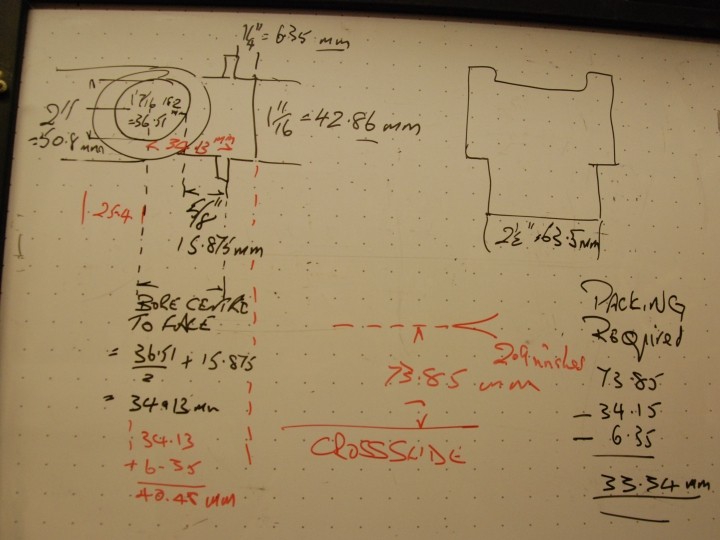 1/4" = 6.35 mm
1 7/16
= 36.51 mm
2"
= 50.8 mm
1 11/16" = 42.86 mm
34.13 mm
1.254
5/8"
15.875 mm
2 1/2" 63.5mm
BORE CENTRE
TO FACE
= 36.51/2 + 15.875
= 34.13 mm
34.13
+ 6.35
40.48 mm
2.9 inches
73.85 mm
CROSSSLIDE
PACKING
REQuired
73.85
- 34.15
- 6.35
33.34 mm